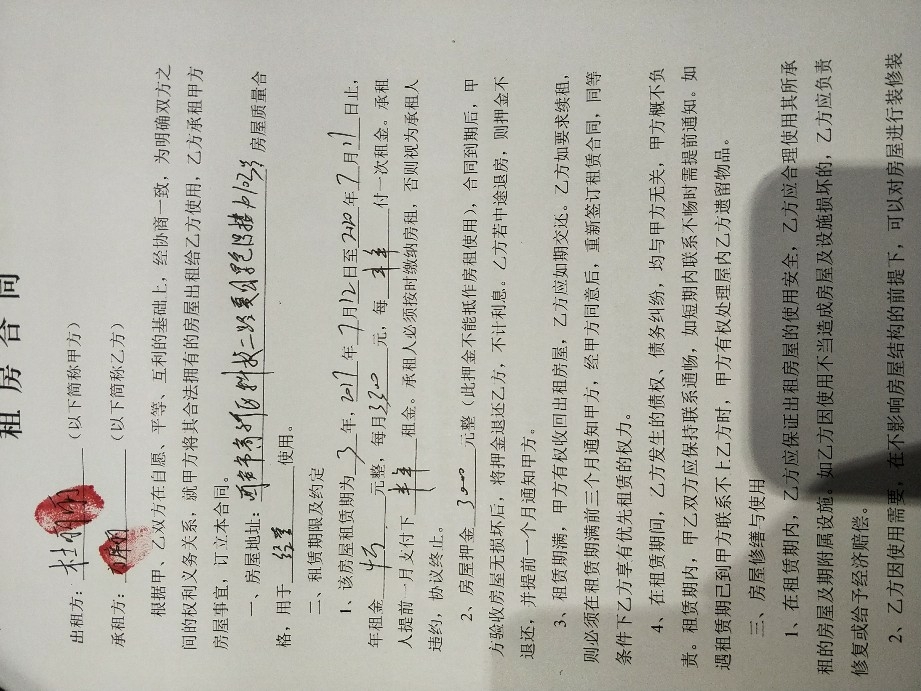 租房合同
出租方：杜（以下简称甲方）
承租方：（以下简称乙方）
根据甲、乙双方在自愿、平等、互利的基础上，经协商一致，为明确双方之
间的权利义务关系，就甲方将其合法拥有的房屋出租给乙方使用，乙方承租甲方
房屋事宜，订立本合同。
一、房屋地址：西安市高新科技二路 房屋质量合
格，用于 经营 使用。
二、租赁期限及约定
1、该房屋租赁期为 3 年，2017 年 7 月 12 日至 2020 年 7 月 11 日止，
年租金 元整，每月 3300 元，每 半年 付一次租金。承租
人提前一月支付下 半年 租金。承租人必须按时缴纳房租，否则视为承租人
违约，协议终止。
2、房屋押金 3000 元整（此押金不能抵作房租使用），合同到期后，甲
方验收房屋无损坏后，将押金退还乙方，不计利息。乙方若中途退房，则押金不
退还，并提前一个月通知甲方。
3、租赁期满，甲方有权收回出租房屋，乙方应如期交还。乙方如要求续租，
则必须在租赁期满前三个月通知甲方，经甲方同意后，重新签订租赁合同，同等
条件下乙方享有优先租赁的权力。
4、在租赁期间，乙方发生的债权、债务纠纷，均与甲方无关，甲方概不负
责。租赁期内，甲乙双方应保持联系通畅，如短期内联系不畅时需提前通知。如
遇租赁期已到甲方联系不上乙方时，甲方有权处理屋内乙方遗留物品。
三、房屋修缮与使用
1、在租赁期内，乙方应保证出租房屋的使用安全，乙方应合理使用其所承
租的房屋及期附属设施。如乙方因使用不当造成房屋及设施损坏的，乙方应负责
修复或给予经济赔偿。
2、乙方因使用需要，在不影响房屋结构的前提下，可以对房屋进行装修装